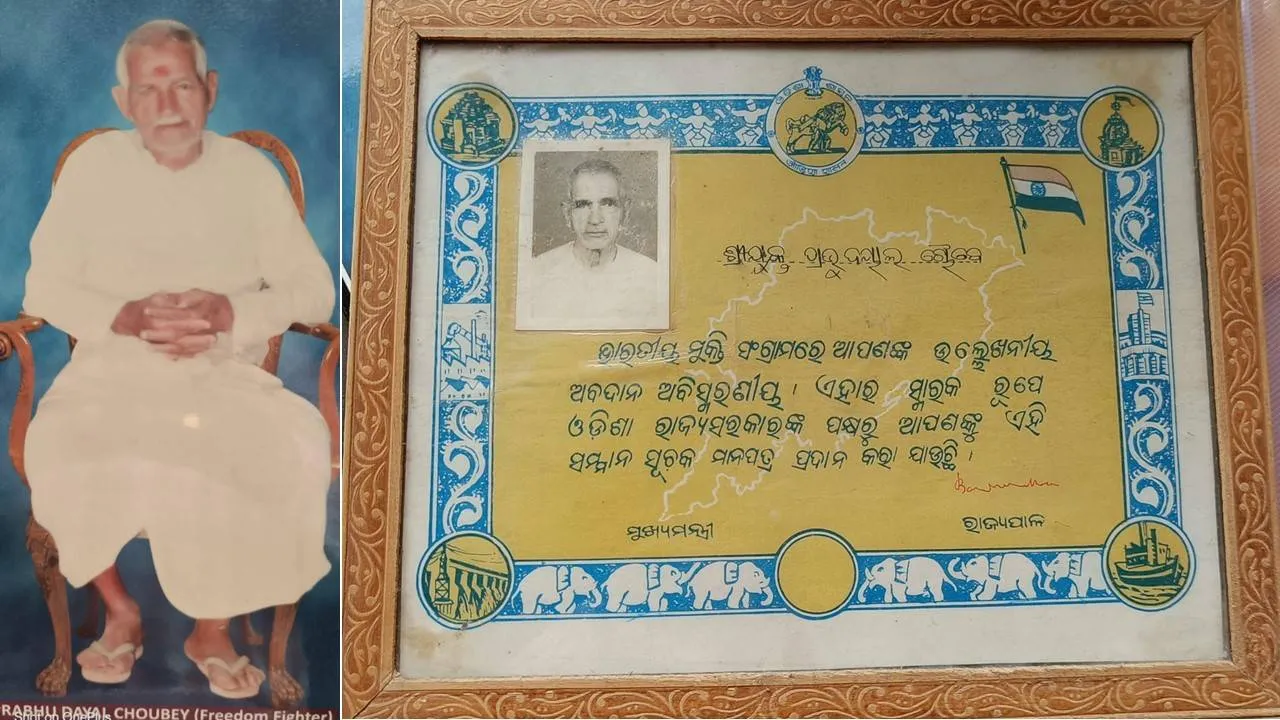 RABHU DAYAL CHOUBEY (Freedom Fighter)
Shot on OnePlus
ଓଡ଼ିଶା ଶାସନ
ଶ୍ରୀଯୁକ୍ତ ପ୍ରଭୁ ଦୟାଲ ଚୌବେ
ଭାରତୀୟ ମୁକ୍ତି ସଂଗ୍ରାମରେ ଆପଣଙ୍କ ଉଲ୍ଲେଖନୀୟ
ଅବଦାନ ଅବିସ୍ମରଣୀୟ । ଏହାର ସ୍ମାରକ ରୂପେ
ଓଡ଼ିଶା ରାଜ୍ୟସରକାରଙ୍କ ପକ୍ଷରୁ ଆପଣଙ୍କୁ ଏହି
ସମ୍ମାନ ସୂଚକ ମାନପତ୍ର ପ୍ରଦାନ କରା ଯାଉଛି ।
ମୁଖ୍ୟମନ୍ତ୍ରୀ
ରାଜ୍ୟପାଳ